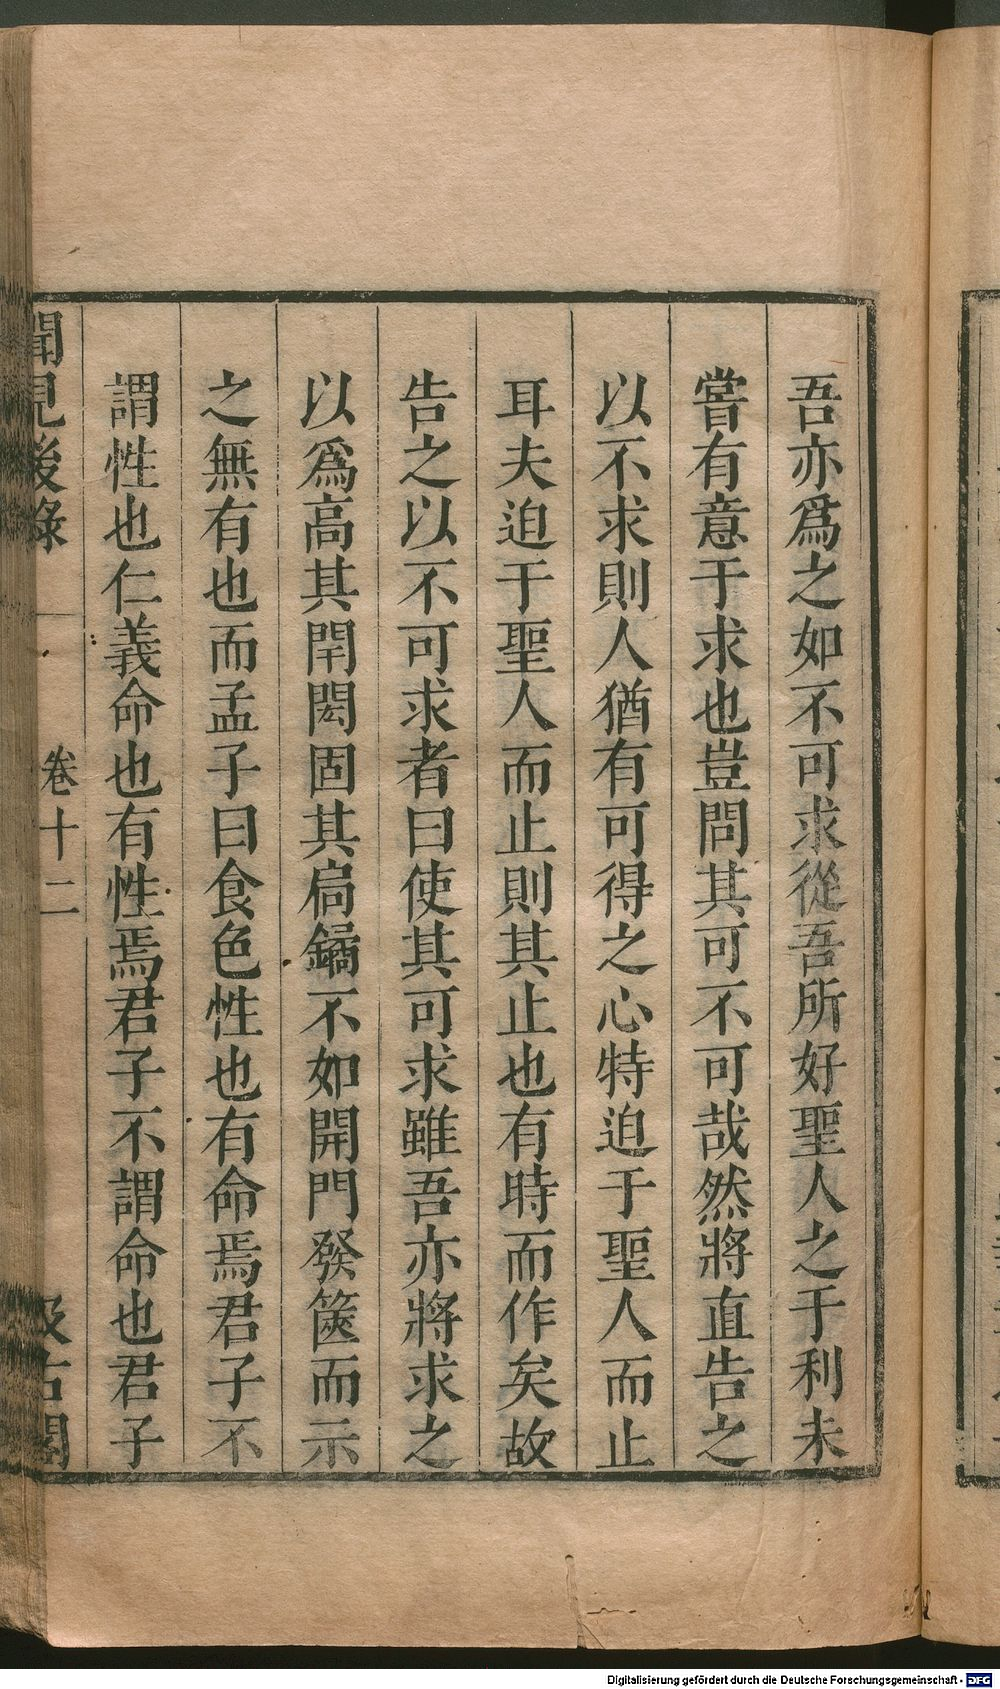 吾亦爲之如不可求從吾所好聖人之于利未
嘗有意于求也豈問其可不可哉然將直告之
以不求則人猶有可得之心特迫于聖人而止
耳夫迫于聖人而止則其止也有時而作矣故
告之以不可求者曰使其可求雖吾亦將求之
以爲高其閈閎固其扃鐍不如開門發篋而示
之無有也而孟子曰食色性也有命焉君子不
謂性也仁義命也有性焉君子不謂命也君子
聞見後錄 卷十二 汲古閣
Digitalisierung gefördert durch die Deutsche Forschungsgemeinschaft - DFG